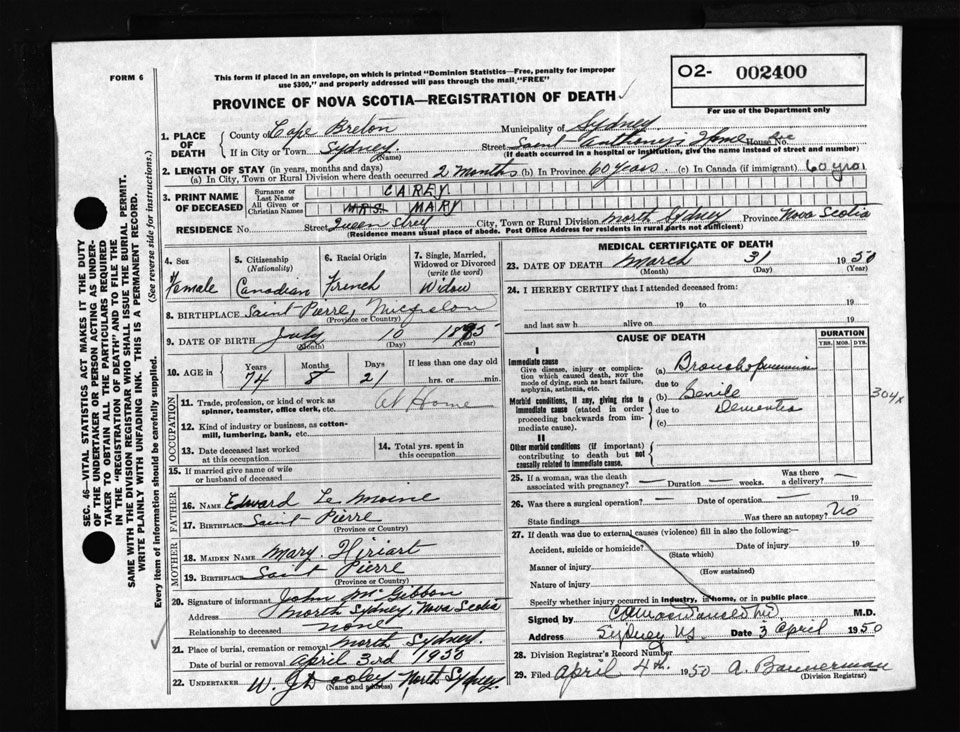 FORM 6
This form if placed in an envelope, on which is printed "Dominion Statistics—Free, penalty for improper
use $300," and properly addressed will pass through the mail "FREE"
O2- 002400
For use of the Department only
PROVINCE OF NOVA SCOTIA—REGISTRATION OF DEATH
1. PLACE OF DEATH
County of Cape Breton Municipality of Sydney
If in City or Town Sydney (Name) Street Saint Anthony's Home House No.
(If death occurred in a hospital or institution, give the name instead of street and number)
2. LENGTH OF STAY (in years, months and days)
(a) In City, Town or Rural Division where death occurred 2 Months (b) In Province 60 years. (c) In Canada (if immigrant) 60 yrs
3. PRINT NAME OF DECEASED
Surname or Last Name CAREY
All Given or Christian Names MRS. MARY
RESIDENCE No. Street Queen Street City, Town or Rural Division North Sydney Province Nova Scotia
(Residence means usual place of abode. Post Office Address for residents in rural parts not sufficient)
4. Sex Female
5. Citizenship (Nationality) Canadian
6. Racial Origin French
7. Single, Married, Widowed or Divorced (write the word) Widow
8. BIRTHPLACE Saint Pierre, Miquelon
(Province or Country)
9. DATE OF BIRTH July 10 1875
(Month) (Day) (Year)
10. AGE in Years 74 Months 8 Days 21 If less than one day old
hrs. or min.
OCCUPATION
11. Trade, profession, or kind of work as spinner, teamster, office clerk, etc. At Home
12. Kind of industry or business, as cotton-mill, lumbering, bank, etc.
13. Date deceased last worked at this occupation
14. Total yrs. spent in this occupation
15. If married give name of wife or husband of deceased
FATHER
16. Name Edward Le Moine
17. Birthplace Saint Pierre
(Province or Country)
MOTHER
18. Maiden Name Mary Hiriart
19. Birthplace Saint Pierre
(Province or Country)
20. Signature of informant John McGibbon
Address North Sydney, Nova Scotia
Relationship to deceased none
21. Place of burial, cremation or removal North Sydney.
Date of burial or removal April 3rd 1950
22. UNDERTAKER W. J. Dooley North Sydney
(Name and address)
MEDICAL CERTIFICATE OF DEATH
23. DATE OF DEATH March 31 1950
(Month) (Day) (Year)
24. I HEREBY CERTIFY that I attended deceased from:
19 to 19
and last saw h alive on 19
CAUSE OF DEATH
DURATION
YRS. MOS. DYS.
I
Immediate cause
Give disease, injury or complication which caused death, nor the mode of dying, such as heart failure, asphyxia, asthenia, etc.
(a) Bronchopneumonia
due to
Morbid conditions, if any, giving rise to immediate cause (stated in order proceeding backwards from immediate cause).
(b) Senile
due to Dementia
(c)
304x
II
Other morbid conditions (if important) contributing to death but not causally related to immediate cause.
25. If a woman, was the death associated with pregnancy? — Duration — weeks. Was there a delivery? —
26. Was there a surgical operation? — Date of operation — 19
State findings Was there an autopsy? No
27. If death was due to external causes (violence) fill in also the following:—
Accident, suicide or homicide? Date of injury 19
(State which)
Manner of injury
(How sustained)
Nature of injury
Specify whether injury occurred in industry, in home, or in public place
Signed by M.D.
Address Sydney NS. Date 3 April 1950
28. Division Registrar's Record Number
29. Filed April 4th. 1950 A. Bannerman
(Division Registrar)
SEC. 46—VITAL STATISTICS ACT MAKES IT THE DUTY
OF THE UNDERTAKER OR PERSON ACTING AS UNDER-
TAKER TO OBTAIN ALL THE PARTICULARS REQUIRED
IN THE "REGISTRATION OF DEATH" AND TO FILE THE
SAME WITH THE DIVISION REGISTRAR WHO SHALL ISSUE THE BURIAL PERMIT.
WRITE PLAINLY WITH UNFADING INK. THIS IS A PERMANENT RECORD.
Every item of Information should be carefully supplied. (See reverse side for instructions.)